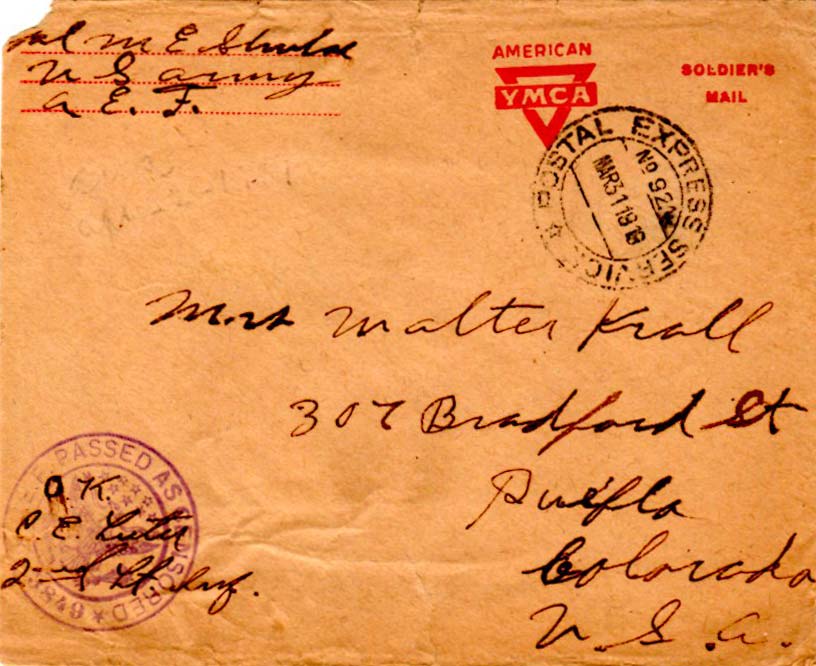 M E
U S army
A. E. F.
AMERICAN
YMCA
SOLDIER'S
MAIL
POSTAL EXPRESS SERVICE
No 92
MAR 31 1918
Mrs Walter Krall
307 Bradford St
Pueblo
Colorado
U. S. a.
PASSED AS CENSORED
O. K.
C. E.
2nd Lt Inf.